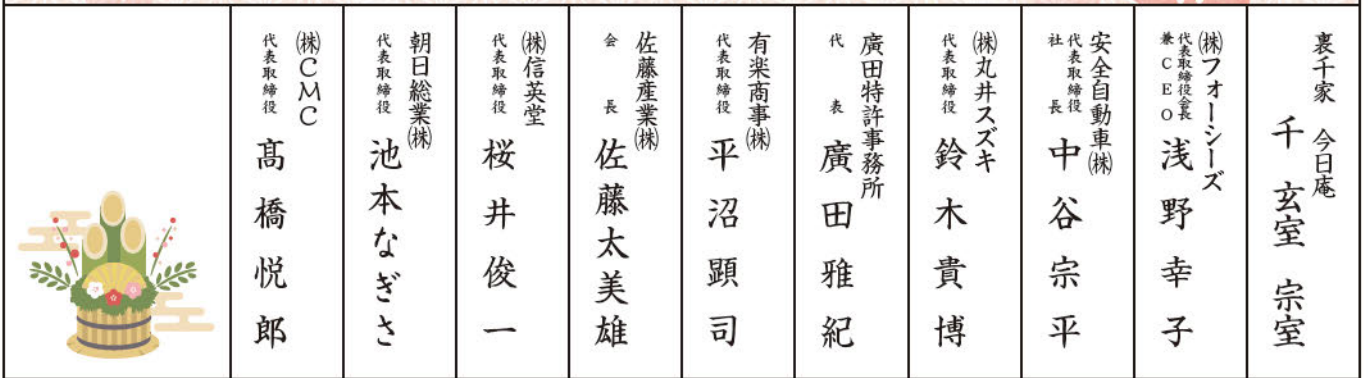 裏千家 今日庵
千 玄室 宗室
㈱フォーシーズ
代表取締役会長
兼CEO
浅野幸子
安全自動車㈱
代表取締役
社長
中谷宗平
㈱丸井スズキ
代表取締役
鈴木貴博
廣田特許事務所
代表
廣田雅紀
有楽商事㈱
代表取締役
平沼顕司
佐藤産業㈱
会長
佐藤太美雄
㈱信英堂
代表取締役
桜井俊一
朝日総業㈱
代表取締役
池本なぎさ
㈱CMC
代表取締役
髙橋悦郎